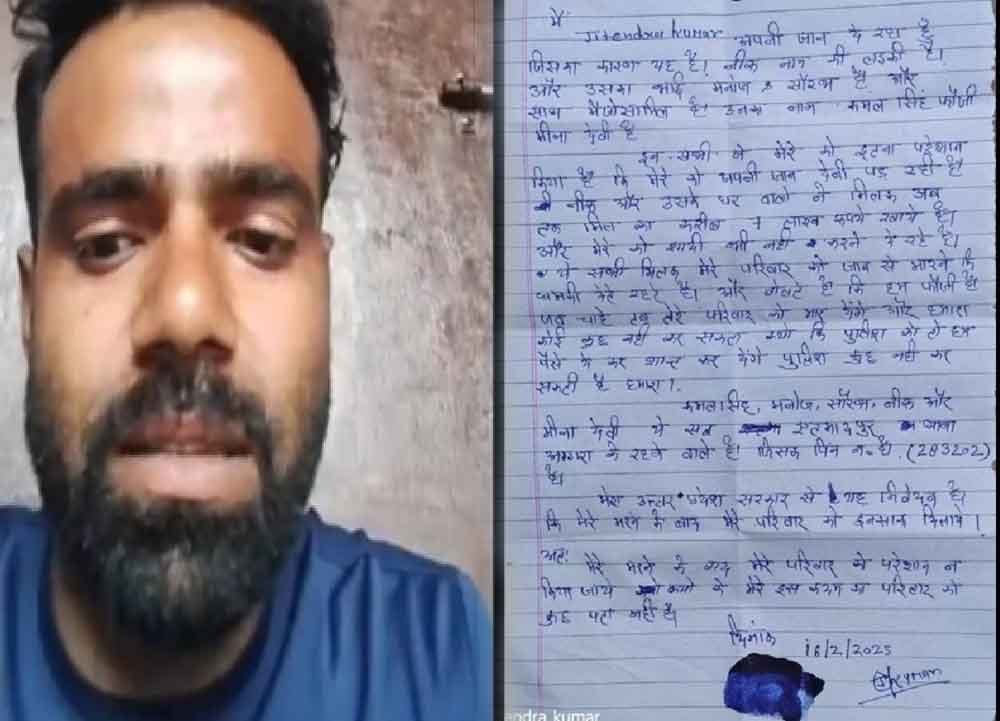 मैं
Jitendra kumar अपनी जान दे रहा हूँ
जिसका कारण यह है। नीक नाम की लडकी है।
और उसका भाई मनोज & सौरभ है और
साथ में है। उनके नाम कमल सिंह फौजी
मीना देवी है
इन सभी ने मेरे को इतना परेशान
किया है कि मेरे को अपनी जान देनी पड रही है
नीक और उसके घर वालो ने मिलक अब
तक मिल का करीब 7 लाख रूपये खाये है।
और मेरे को शादी भी नही करने दे रहे है।
ये सभी मिलक मेरे परिवार को जान से मारने कि
धामकी देते रहते है। और बोलते है कि हम फौजी है
जब चाहे तब तेरे परिवार को मार देंगे और हमारा
कोई कुछ नही कर सकता क्यो कि पुलिस को तो हम
पैसे दे कर शान्त कर देंगे पुलिस कुछ नही कर
सकती है हमारा।
कमल सिंह, मनोज, सौरभ, नीक और
मीना देवी ये सब एत्मादपुर
आगरा के रहने वाले है। जिसका पिन न. है. (283202)
है।
मेरा उत्तर प्रदेश सरकार से यह निवेदन है।
कि मेरे मरने के बाद मेरे परिवार को इनसाफ दिलाये।
अतः मेरे मरने के बाद मेरे परिवार को परेशान न
किया जाये क्यो के मेरे इस कदम का परिवार को
कुछ पता नही है।
दिनांक 16/2/2025
andra kumar